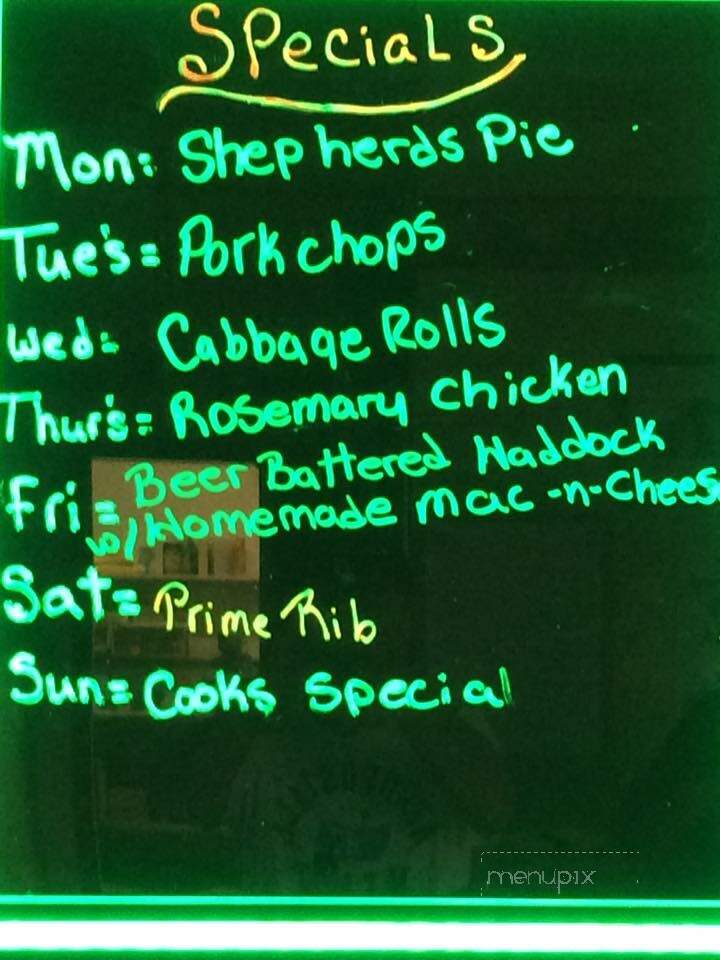 Specials
Mon: Shepherds Pie
Tue's = Pork chops
Wed= Cabbage Rolls
Thur's= Rosemary Chicken
Fri = Beer Battered Haddock
w/ Homemade mac-n-Chees
Sat= Prime Rib
Sun= Cooks Special
menupix